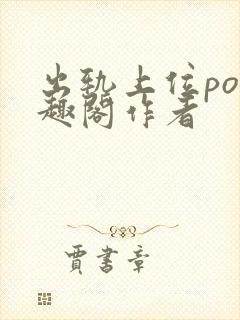 出轨上位po
趣阁作者
贾书章